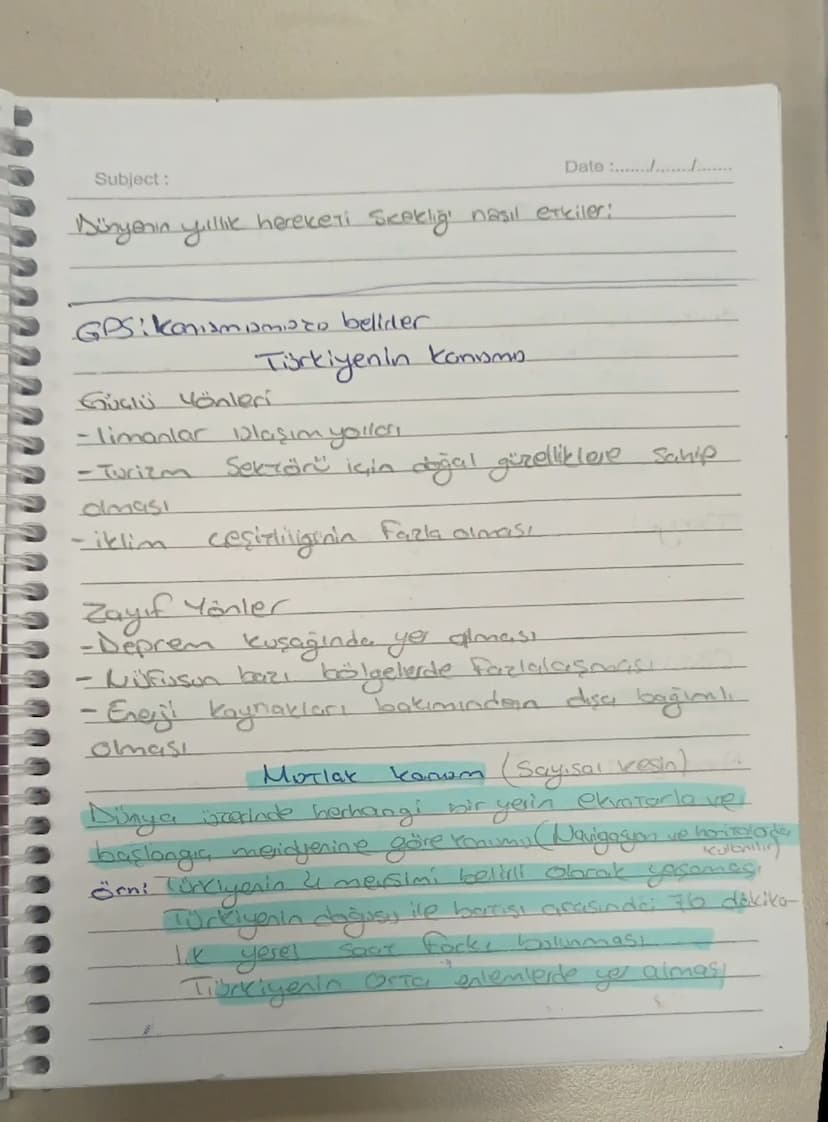 Subject :
Date :......./......./.......
Dünyanın yıllık hareketi sıcaklığı nasıl etkiler:
GPS: konumumuzu belirler
Türkiyenin konumu
Güçlü Yönleri
- limanlar ulaşım yolları
- Turizm Sektörü için doğal güzelliklere sahip
olması
- iklim çeşitliliğinin fazla olması
Zayıf Yönler
- Deprem kuşağında yer alması
- Nüfusun bazı bölgelerde fazlalaşması
- Enerji kaynakları bakımından dışa bağımlı
olması
Mutlak konum (Sayısal kesin)
Dünya üzerinde herhangi bir yerin ekvatorla ve
başlangıç meridyenine göre konumu (Navigasyon ve haritalarda
kullanılır)
Örn: Türkiyenin 4 mevsimi belirli olarak yaşaması
Türkiyenin doğusu ile batısı arasındaki 76 dakika-
lık yerel saat farkı bulunması
Türkiyenin Orta enlemlerde yer alması